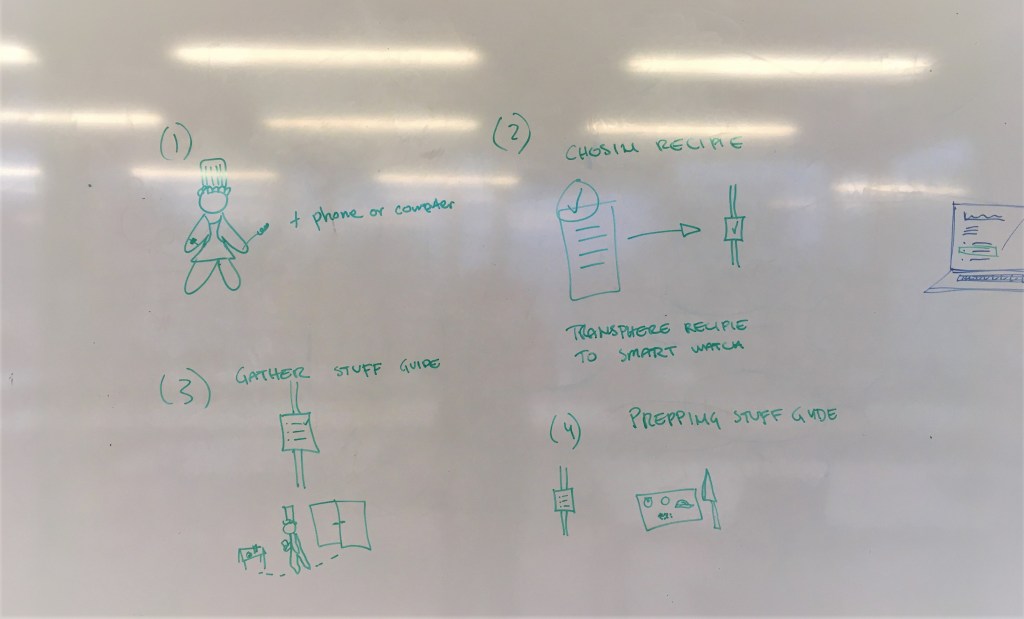 (1)
+ phone or computer
(2)
CHOSIM RECIPIE
TRANSPHERE RECIPIE
TO SMART WATCH
(3)
GATHER STUFF GUIDE
(4)
PREPPING STUFF GUIDE